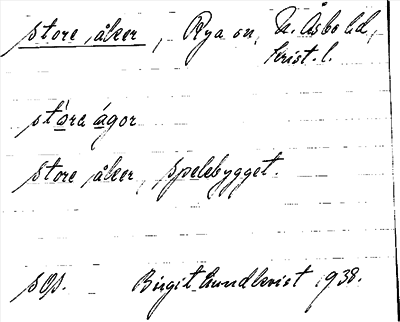 store åker, Rya sn, N. Åsbo hd,
Krist. l.
stóra ágor
store åker, spelebygget.
sOs. Birgit Lundkvist 1938.